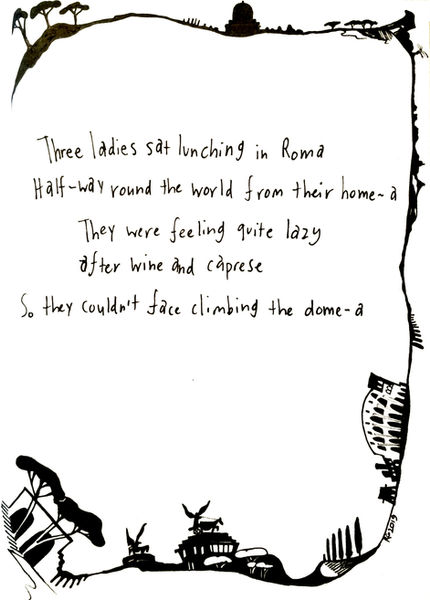 Three ladies sat lunching in Roma
Half-way round the world from their home-a
They were feeling quite lazy
after wine and caprese
So they couldn't face climbing the dome-a